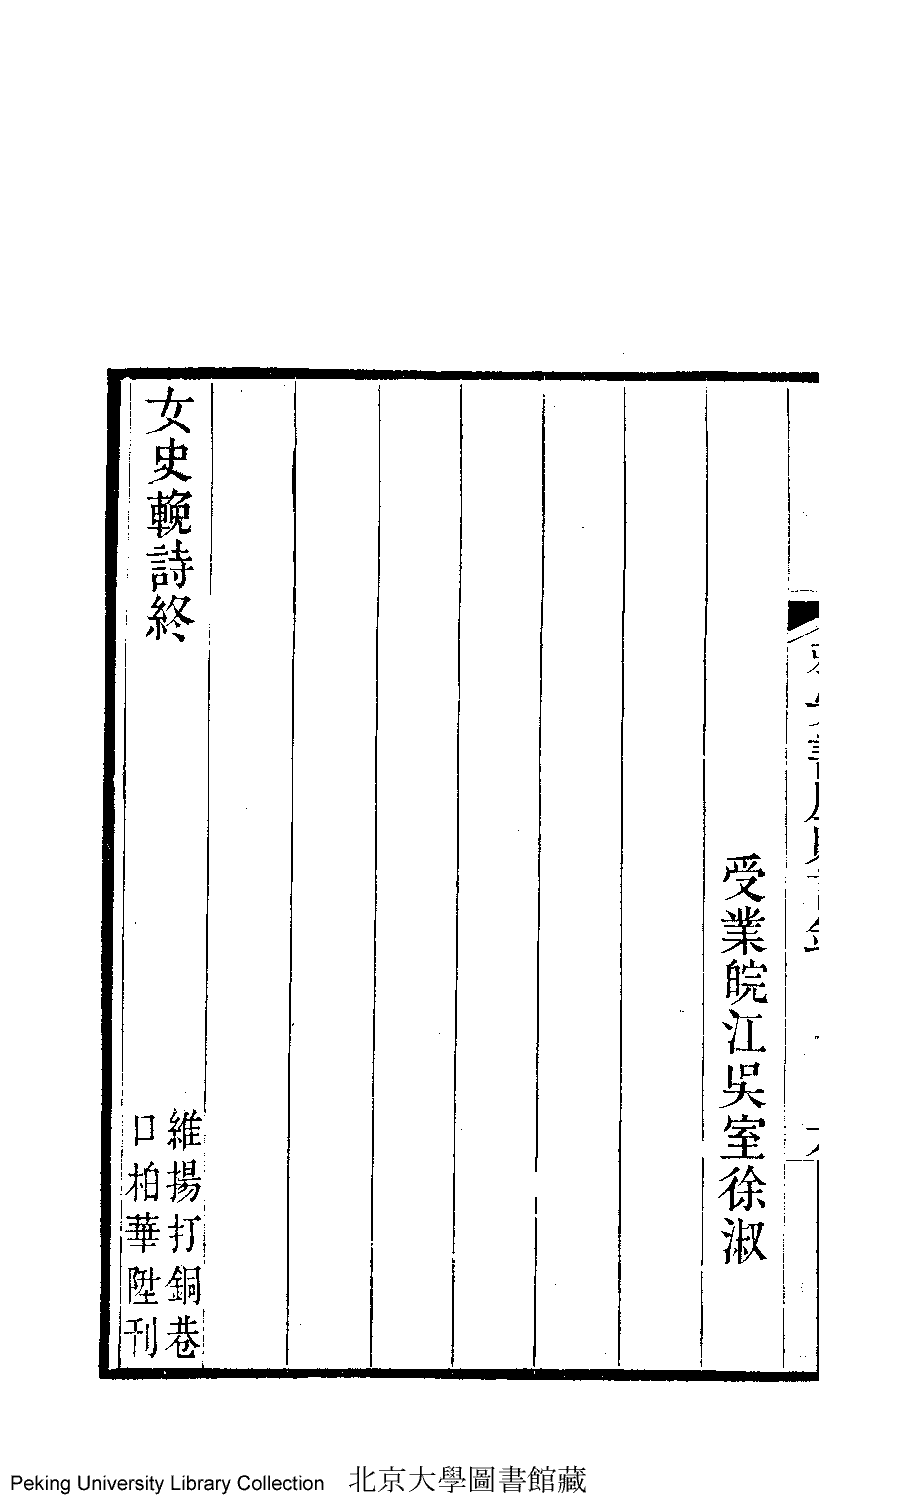 受業皖江吳室徐淑
女史輓詩終
維揚打銅巷
口柏華陞刊
Peking University Library Collection 北京大學圖書館藏